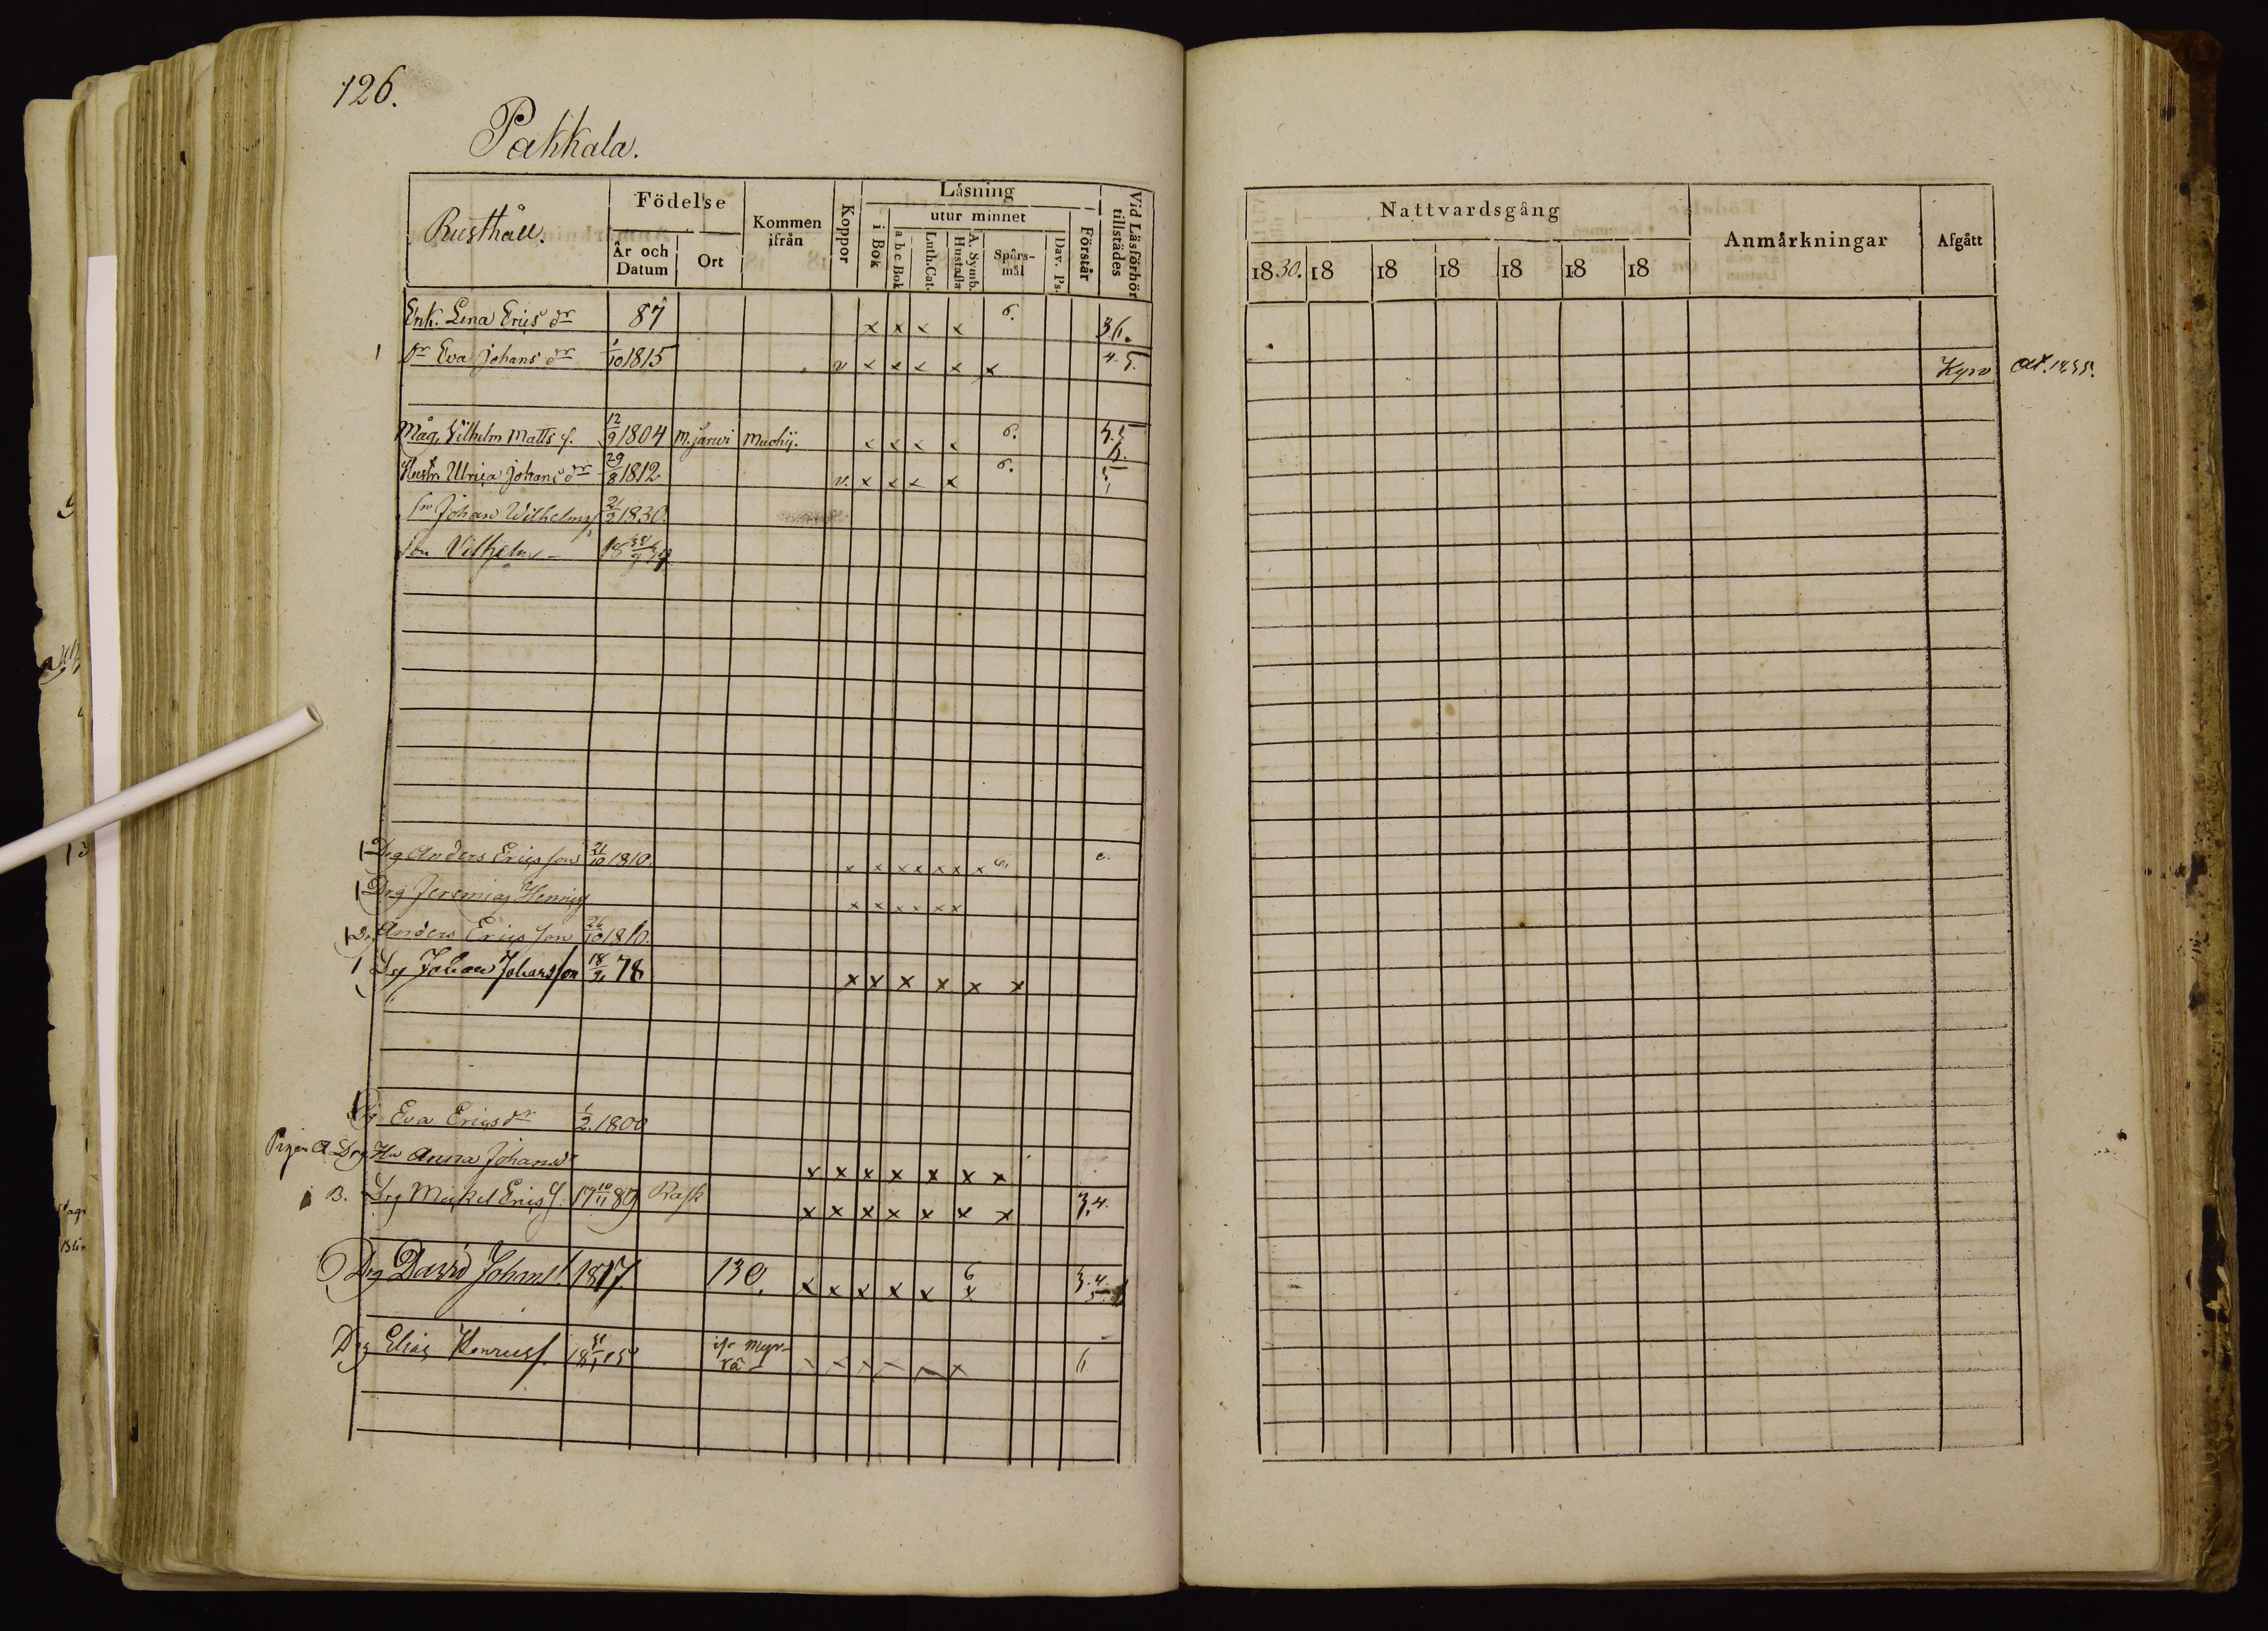 126.
Pakkala.
Rusthåll.
Födelse
År och Datum
Ort
Kommen ifrån
Koppor
Läsning
i Bok
utur minnet
a b c Bok
Luth. Cat.
A. Symb. Hustafla
Spörsmål
Dav. Ps.
Förstår
Vid Läsförhör tillstädes
Nattvardsgång
18 30. 18 18 18 18 18 18
Anmärkningar
Afgått
Enk. Lena Erics dr 87 x x x x 6. 3.6.
1 Dr Eva Johans dr 1/10 1815 v x x x x x 4. 5. Kyro
Måg, Vilhelm Matts s. 12/9 1804 M. järwi x x x x 6. 3.5
Hustr. Ulrica Johans dr 29/8 1812 v. x x x x 6. 5
Sn Johan Wilhelms s. 21/2 1830.
Son Vilhelm
1 Drg Anders Ericsson 21/10 1810. x x x x x x x 6. 6.
1 Drg Jeremias Henrics x x x x x x
1 Dr. Anders Ericsson 26/10 1810.
1 Drg Johan Johansson 18/9 78 x x x x x x
Eva Ericsdr 1/2. 1800
Pigan A Drg Hu Anna Johansdr x x x x x x x
B. Drg Mickel Erics s. 17 10/11 89 Kask x x x x x x x 3,4.
Drg David Johans s. 1817. 130. x x x x x 6 x 3.4. 5.
Drg Elias Henricss. ifr x x x x x x 6